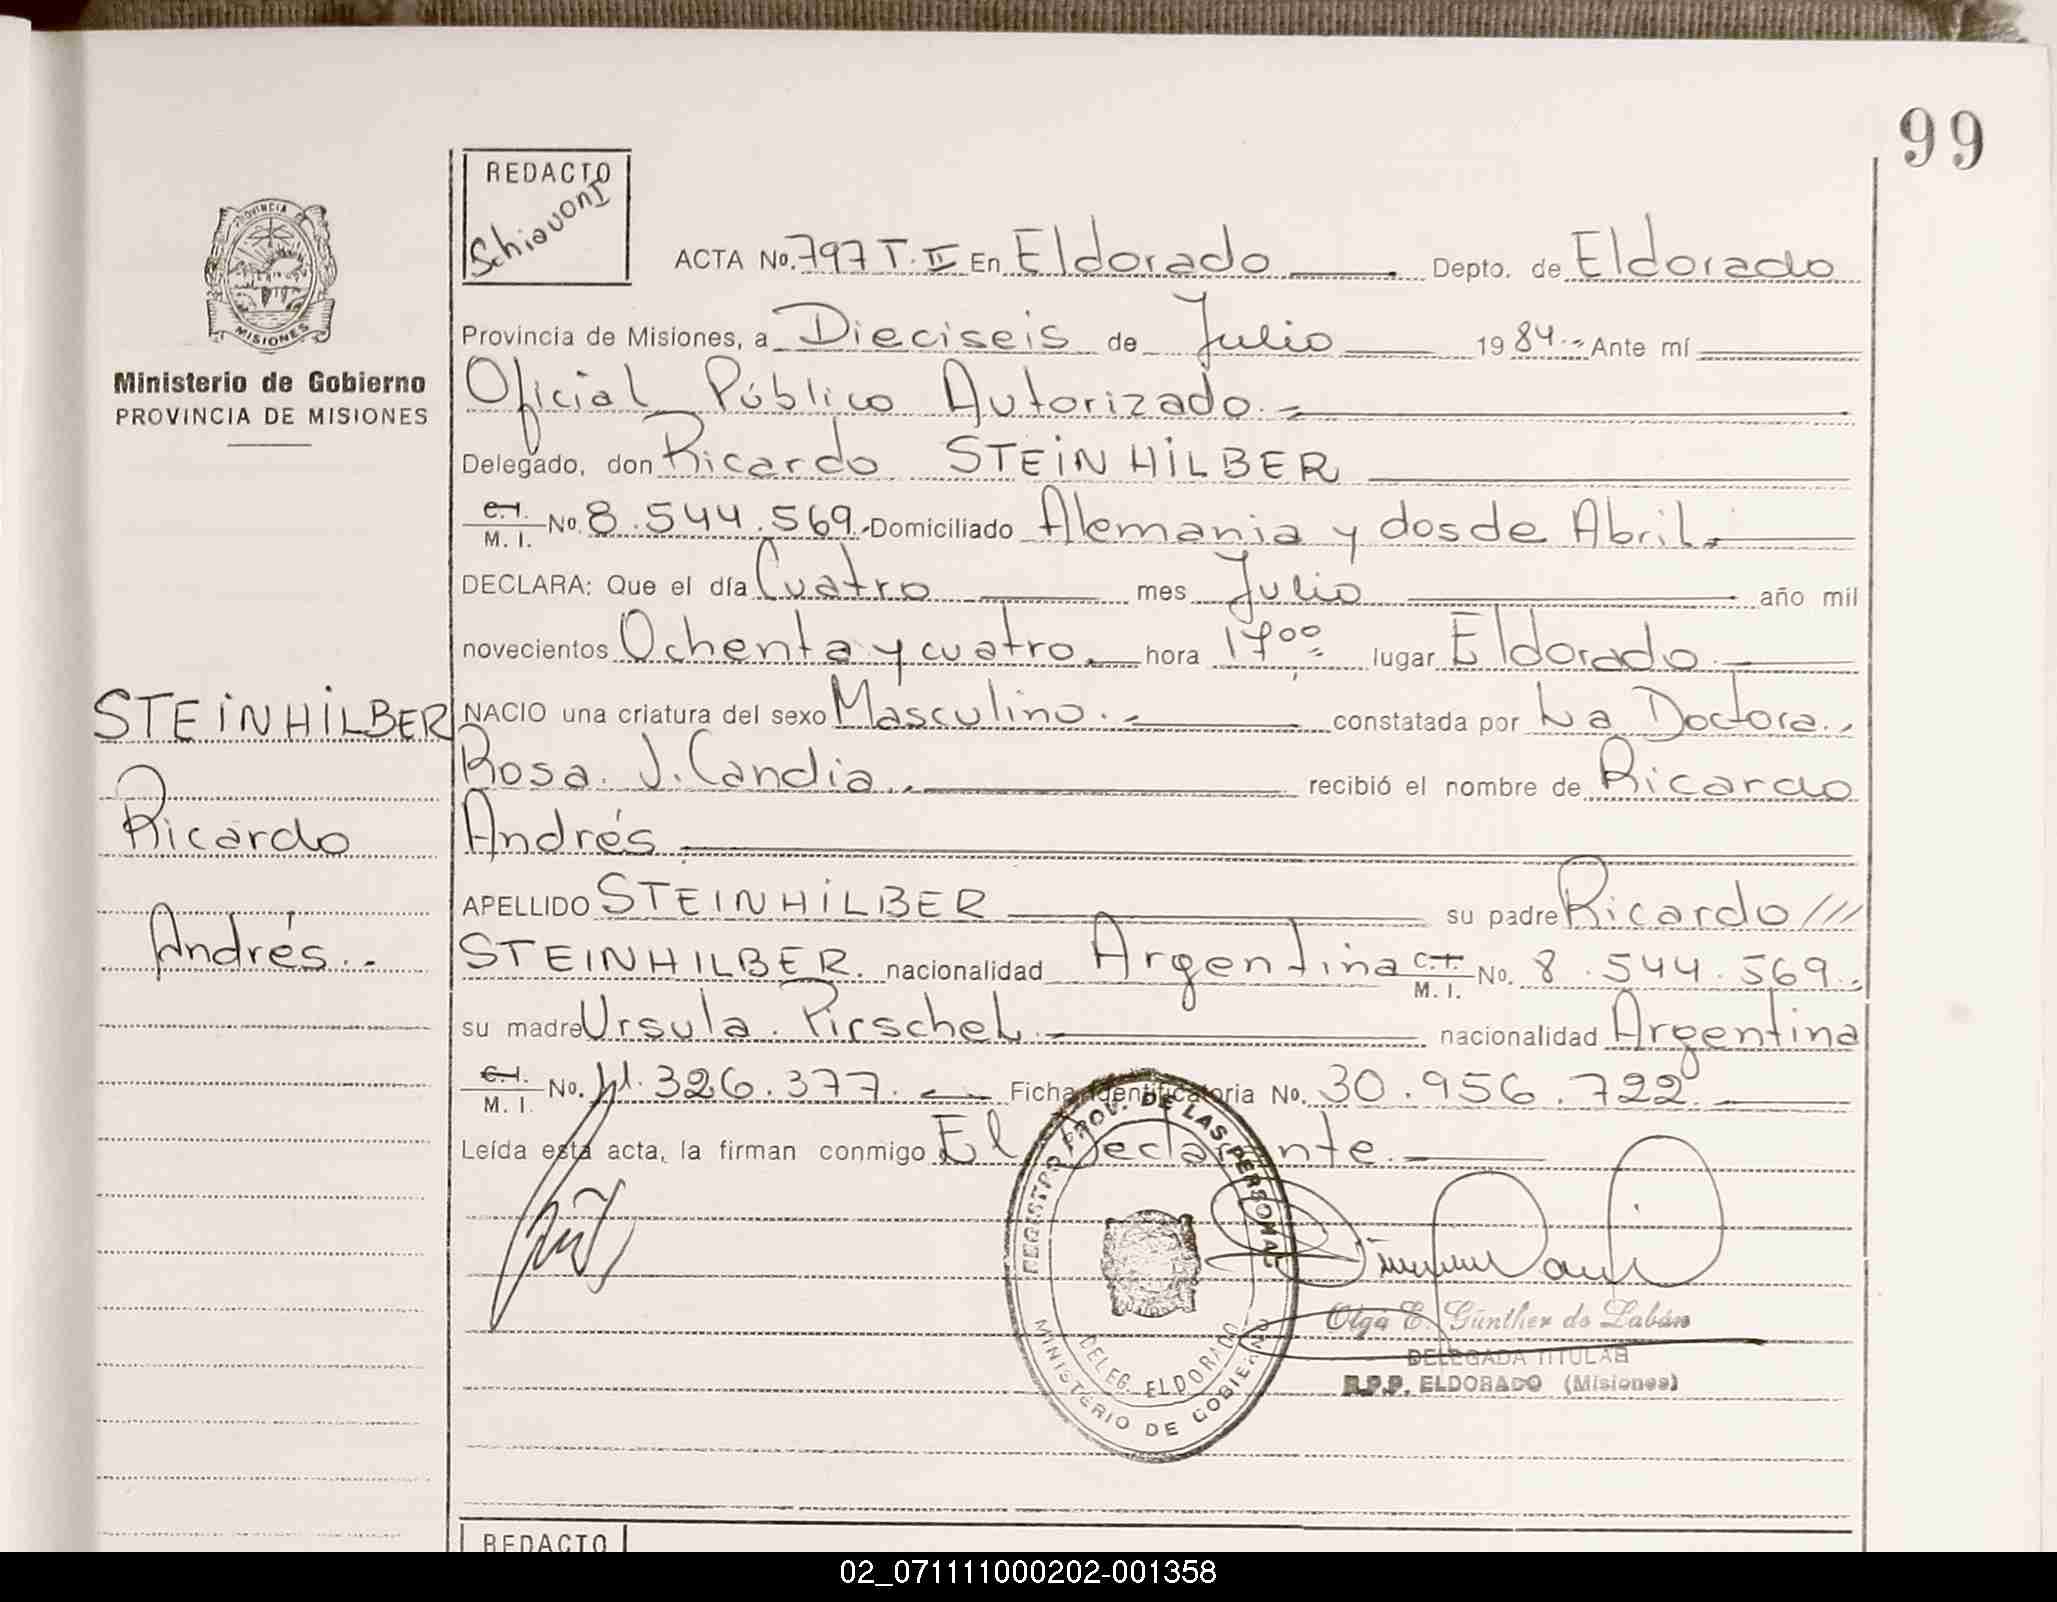 99
REDACTO
Schiavoni
PROVINCIA
MISIONES
Ministerio de Gobierno
PROVINCIA DE MISIONES
ACTA No. 797 T. II En Eldorado Depto. de Eldorado
Provincia de Misiones, a Dieciseis de Julio 1984.- Ante mí
Oficial Público Autorizado.-
Delegado, don Ricardo STEINHILBER
C.I. M. I. No. 8.544.569.- Domiciliado Alemania y dos de Abril.-
DECLARA: Que el día Cuatro mes Julio año mil
novecientos Ochenta y cuatro.- hora 17⁰⁰.- lugar Eldorado.-
NACIO una criatura del sexo Masculino.- constatada por La Doctora.-
Rosa. J. Candia.- recibió el nombre de Ricardo
Andrés
APELLIDO STEINHILBER su padre Ricardo ///
STEINHILBER. nacionalidad Argentina C.I. M. I. No. 8.544.569.-
su madre Ursula. Pirschel.- nacionalidad Argentina
C.I. M. I. No. 11.326.377.- Ficha Identificatoria No. 30.956.722.-
Leída esta acta, la firman conmigo El Declarante.-
STEINHILBER
Ricardo
Andrés.-
REGISTRO PROV. DE LAS PERSONAS
DELEG. ELDORADO
MINISTERIO DE GOBIERNO
Olga E. Günther de Labán
DELEGADA TITULAR
R.P.P. ELDORADO (Misiones)
REDACTO
02_071111000202-001358